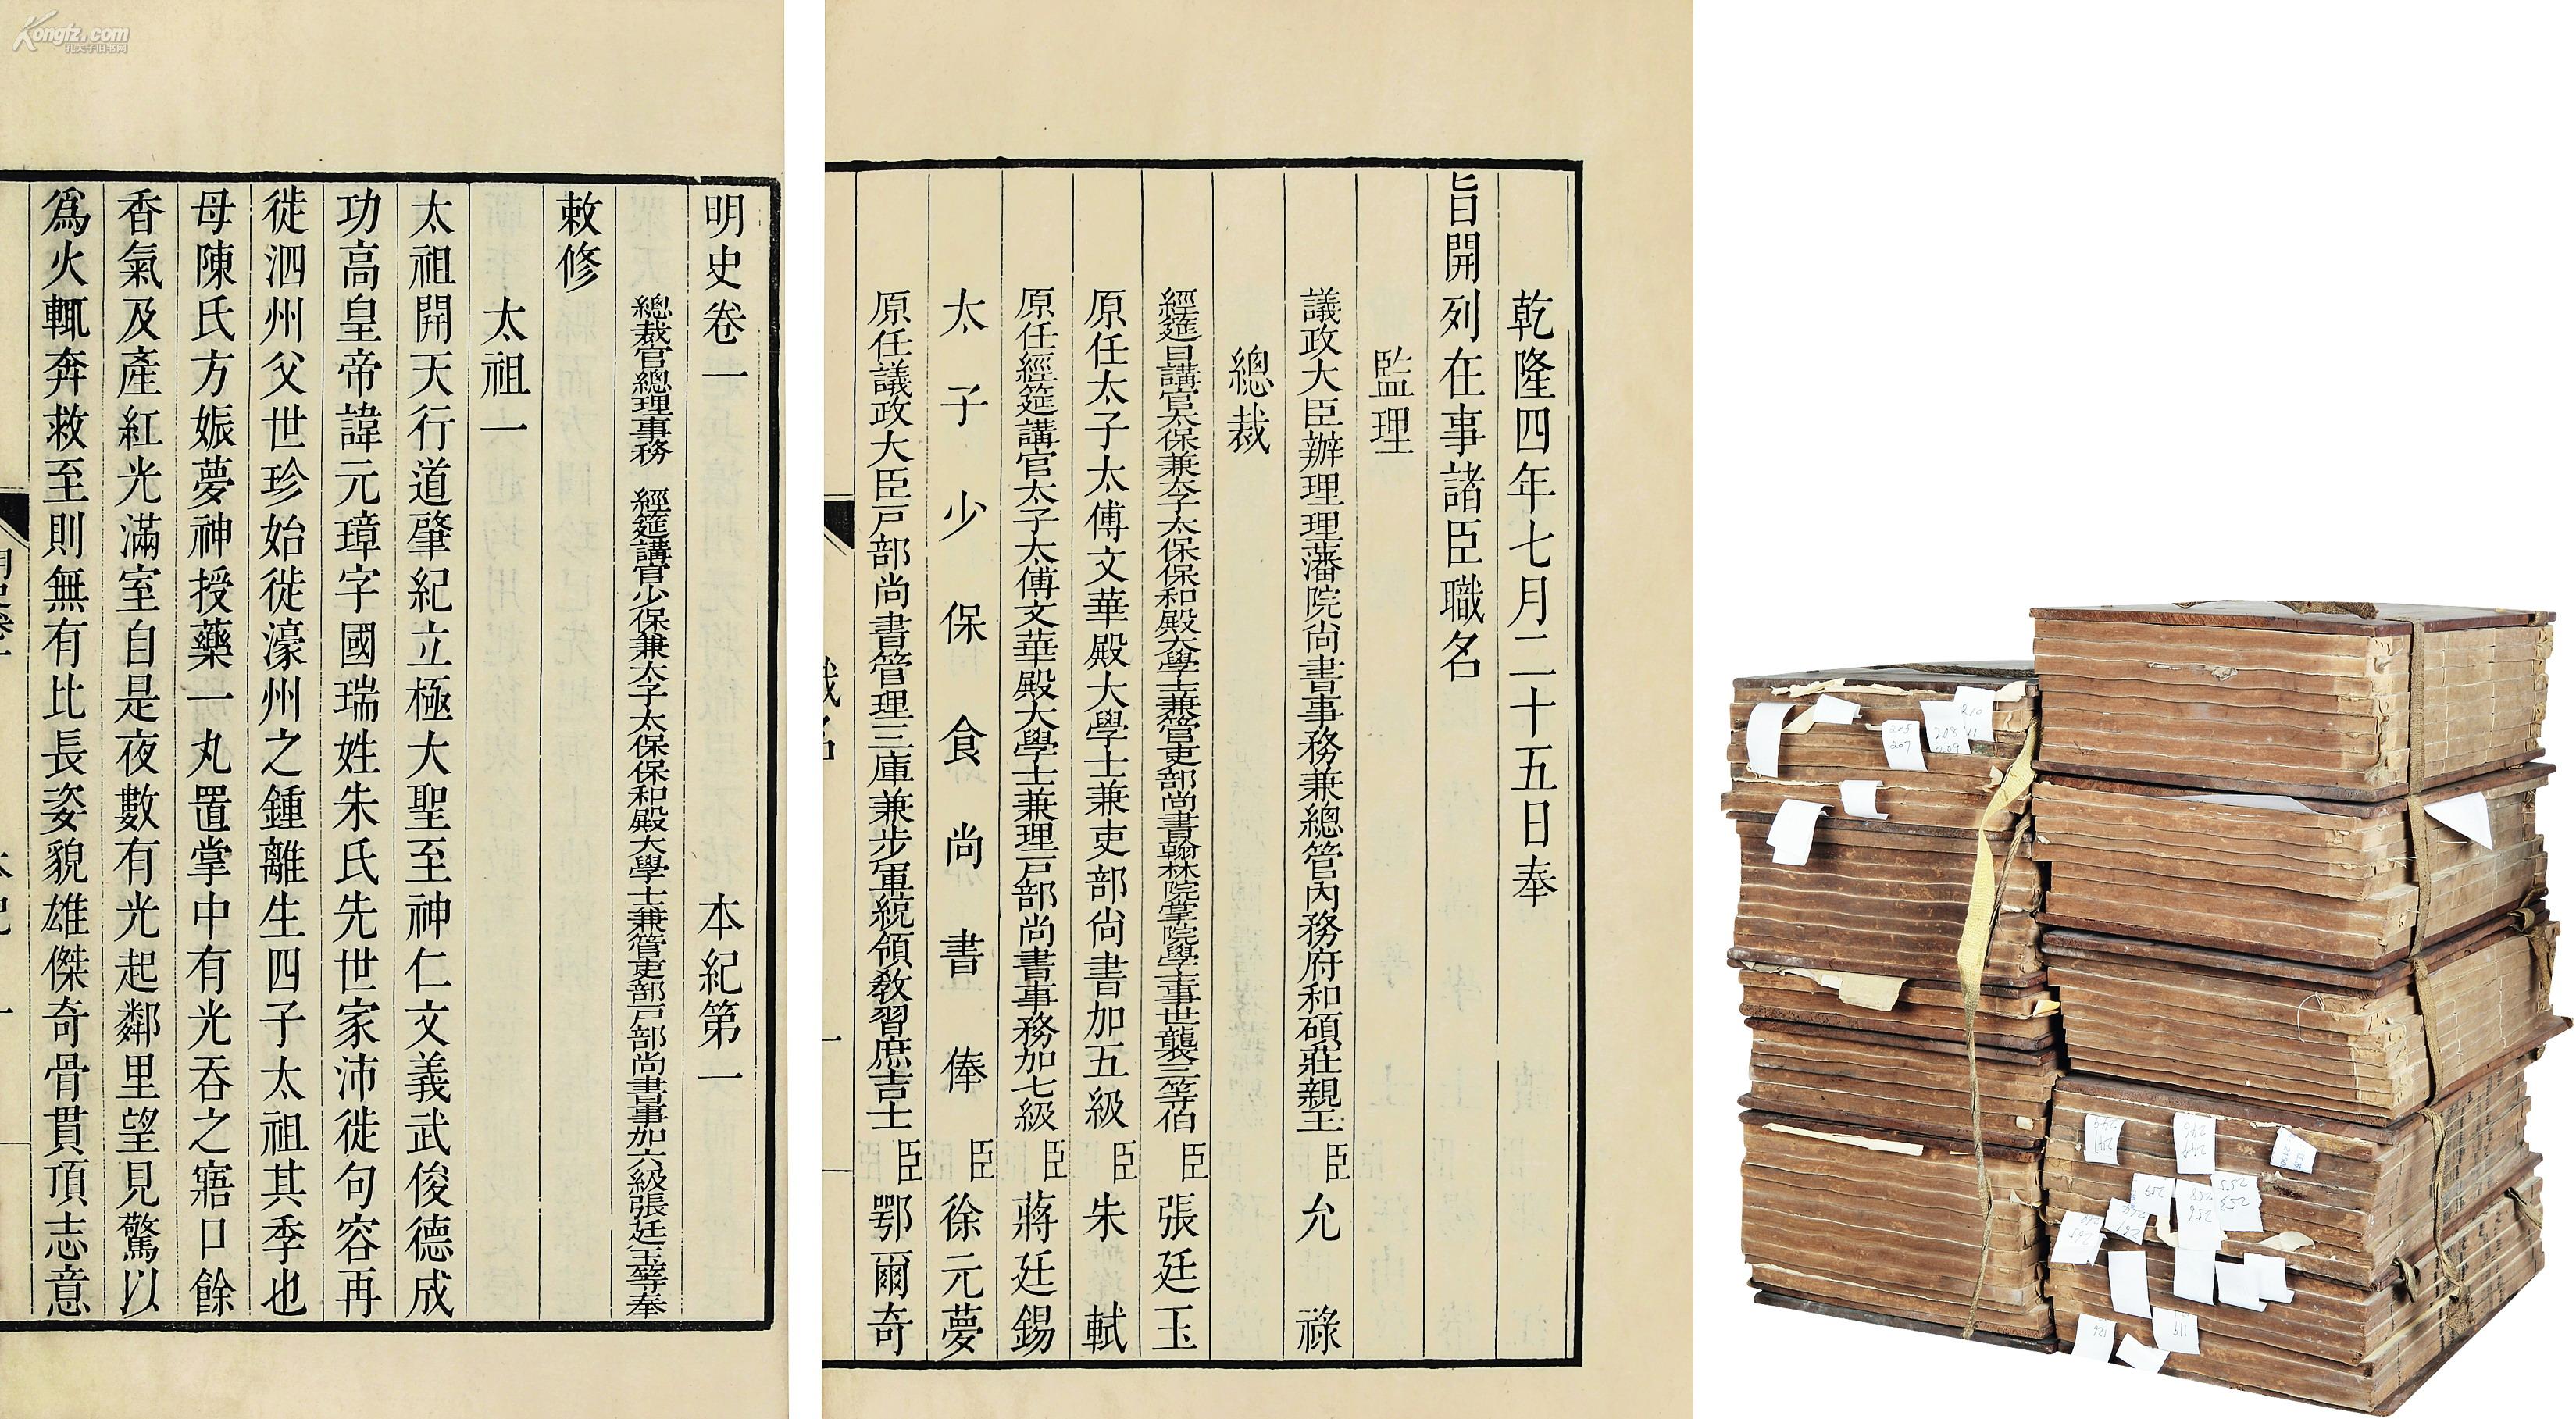 Kongfz.com
孔夫子旧书网
明史卷一 本紀第一
總裁官總理事務 經筵講官少保兼太子太保保和殿大學士兼管吏部戸部尚書事加六級張廷玉等奉
敕修
太祖一
太祖開天行道肇紀立極大聖至神仁文義武俊德成
功高皇帝諱元璋字國瑞姓朱氏先世家沛徙句容再
徙泗州父世珍始徙濠州之鍾離生四子太祖其季也
母陳氏方娠夢神授藥一丸置掌中有光吞之寤口餘
香氣及產紅光滿室自是夜數有光起鄰里望見驚以
為火輒奔救至則無有比長姿貌雄傑奇骨貫頂志意
乾隆四年七月二十五日奉
旨開列在事諸臣職名
監理
議政大臣辦理理藩院尚書事務兼總管內務府和碩莊親王 臣 允祿
總裁
經筵日講官太保兼太子太保保和殿大學士兼管吏部尚書翰林院掌院學士事世襲三等伯 臣 張廷玉
原任太子太傅文華殿大學士兼吏部尚書加五級 臣 朱軾
原任經筵講官太子太傅文華殿大學士兼理戸部尚書事務加七級 臣 蔣廷錫
太子少保食尚書俸 臣 徐元夢
原任議政大臣戸部尚書管理三庫兼步軍統領教習庶吉士 臣 鄂爾奇
210
215
207
208 11
209